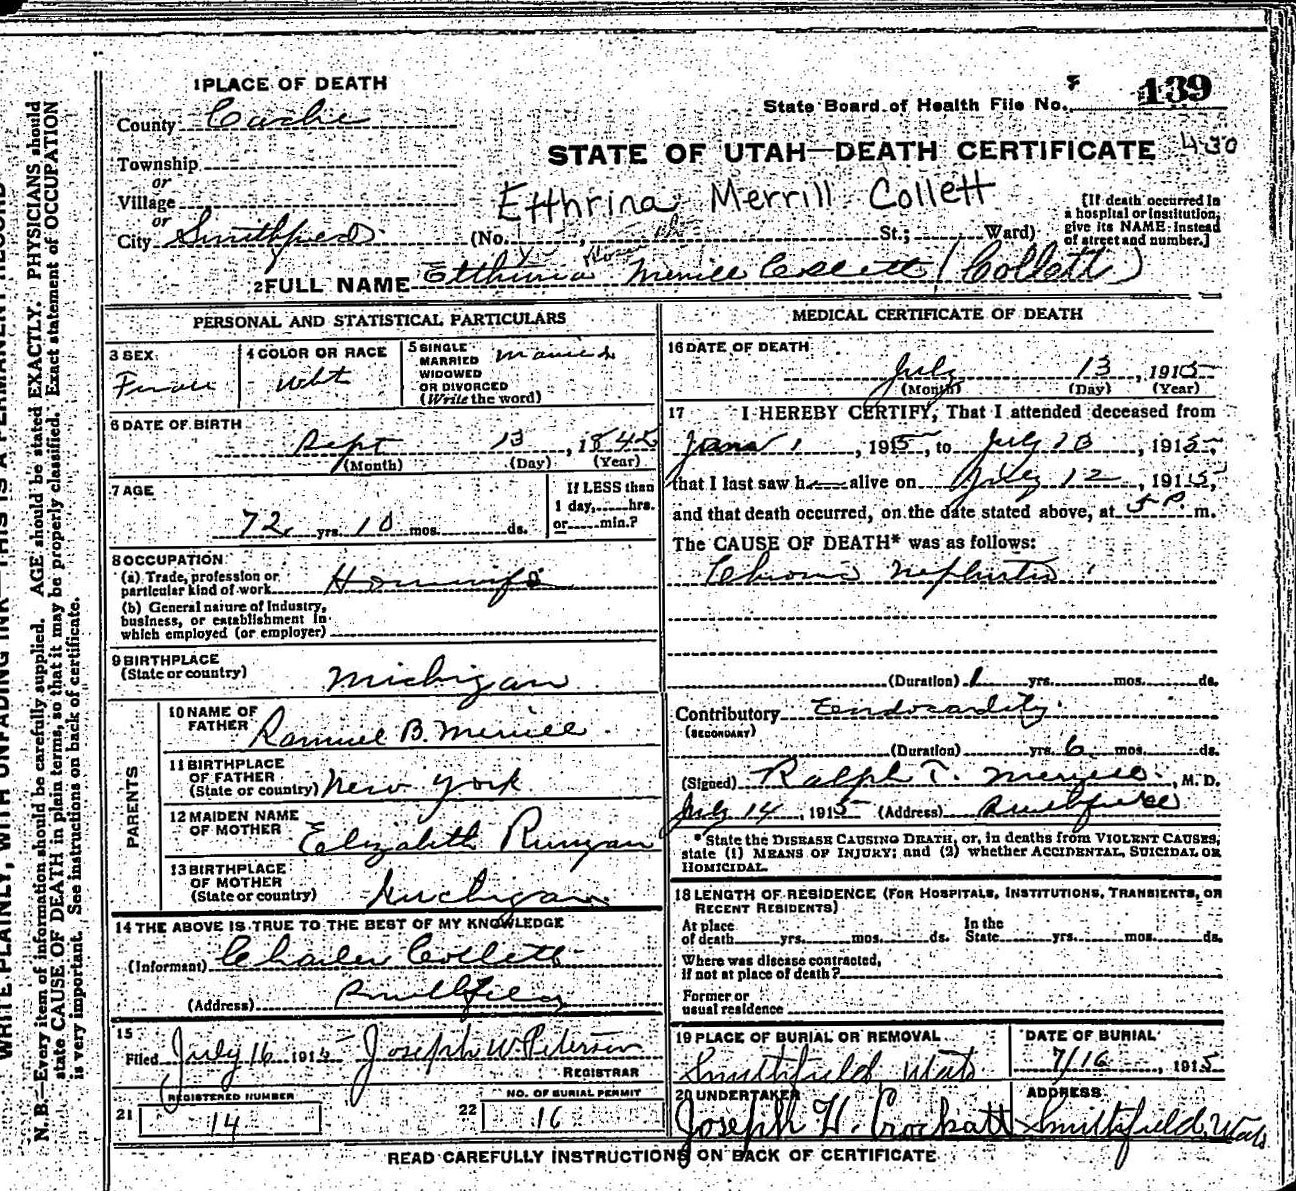 WRITE PLAINLY, WITH UNFADING INK—THIS IS A PERMANENT RECORD
N. B.—Every item of information should be carefully supplied. AGE should be stated EXACTLY. PHYSICIANS should
state CAUSE OF DEATH in plain terms, so that it may be properly classified. Exact statement of OCCUPATION
is very important. See instructions on back of certificate.
1 PLACE OF DEATH
County Cache
Township
or
Village
or
City Smithfield
State Board of Health File No. 139
STATE OF UTAH—DEATH CERTIFICATE 430
Etthrina Merrill Collett
(No. , St.; Ward)
[If death occurred in
a hospital or institution,
give its NAME instead
of street and number.]
2 FULL NAME Etthrina Merrill Collett (Collett)
PERSONAL AND STATISTICAL PARTICULARS
3 SEX Female
4 COLOR OR RACE Wht
5 SINGLE
MARRIED
WIDOWED
OR DIVORCED
(Write the word) Married
6 DATE OF BIRTH
Sept 13, 1842
(Month) (Day) (Year)
7 AGE
72 yrs. 10 mos. ds.
If LESS than
1 day, hrs.
or min.?
8 OCCUPATION
(a) Trade, profession or
particular kind of work Housewife
(b) General nature of Industry,
business, or establishment in
which employed (or employer)
9 BIRTHPLACE
(State or country) Michigan
PARENTS
10 NAME OF
FATHER Samuel B. Merrill
11 BIRTHPLACE
OF FATHER
(State or country) New York
12 MAIDEN NAME
OF MOTHER Elizabeth Runyan
13 BIRTHPLACE
OF MOTHER
(State or country) Michigan
14 THE ABOVE IS TRUE TO THE BEST OF MY KNOWLEDGE
(Informant) Charles Collett
(Address) Smithfield
15
Filed July 16 1915 Joseph W. Peterson
REGISTRAR
REGISTERED NUMBER
21 14
NO. OF BURIAL PERMIT
22 16
MEDICAL CERTIFICATE OF DEATH
16 DATE OF DEATH
July 13, 1915
(Month) (Day) (Year)
17 I HEREBY CERTIFY, That I attended deceased from
Jan 1, 1915, to July 13, 1915,
that I last saw h alive on July 12, 1915,
and that death occurred, on the date stated above, at 5 P. m.
The CAUSE OF DEATH* was as follows:
Chronic Nephritis
(Duration) 1 yrs. mos. ds.
Contributory Endocarditis
(SECONDARY)
(Duration) yrs. 6 mos. ds.
(Signed) Ralph T. Merrill, M. D.
July 14, 1915 (Address) Smithfield
* State the DISEASE CAUSING DEATH, or, in deaths from VIOLENT CAUSES,
state (1) MEANS OF INJURY; and (2) whether ACCIDENTAL, SUICIDAL OR
HOMICIDAL.
18 LENGTH OF RESIDENCE (FOR HOSPITALS, INSTITUTIONS, TRANSIENTS, OR
RECENT RESIDENTS)
At place
of death yrs. mos. ds.
In the
State yrs. mos. ds.
Where was disease contracted,
if not at place of death?
Former or
usual residence
19 PLACE OF BURIAL OR REMOVAL
Smithfield, Utah
DATE OF BURIAL
7/16, 1915
20 UNDERTAKER
Joseph H. Crockatt
ADDRESS
Smithfield, Utah
READ CAREFULLY INSTRUCTIONS ON BACK OF CERTIFICATE